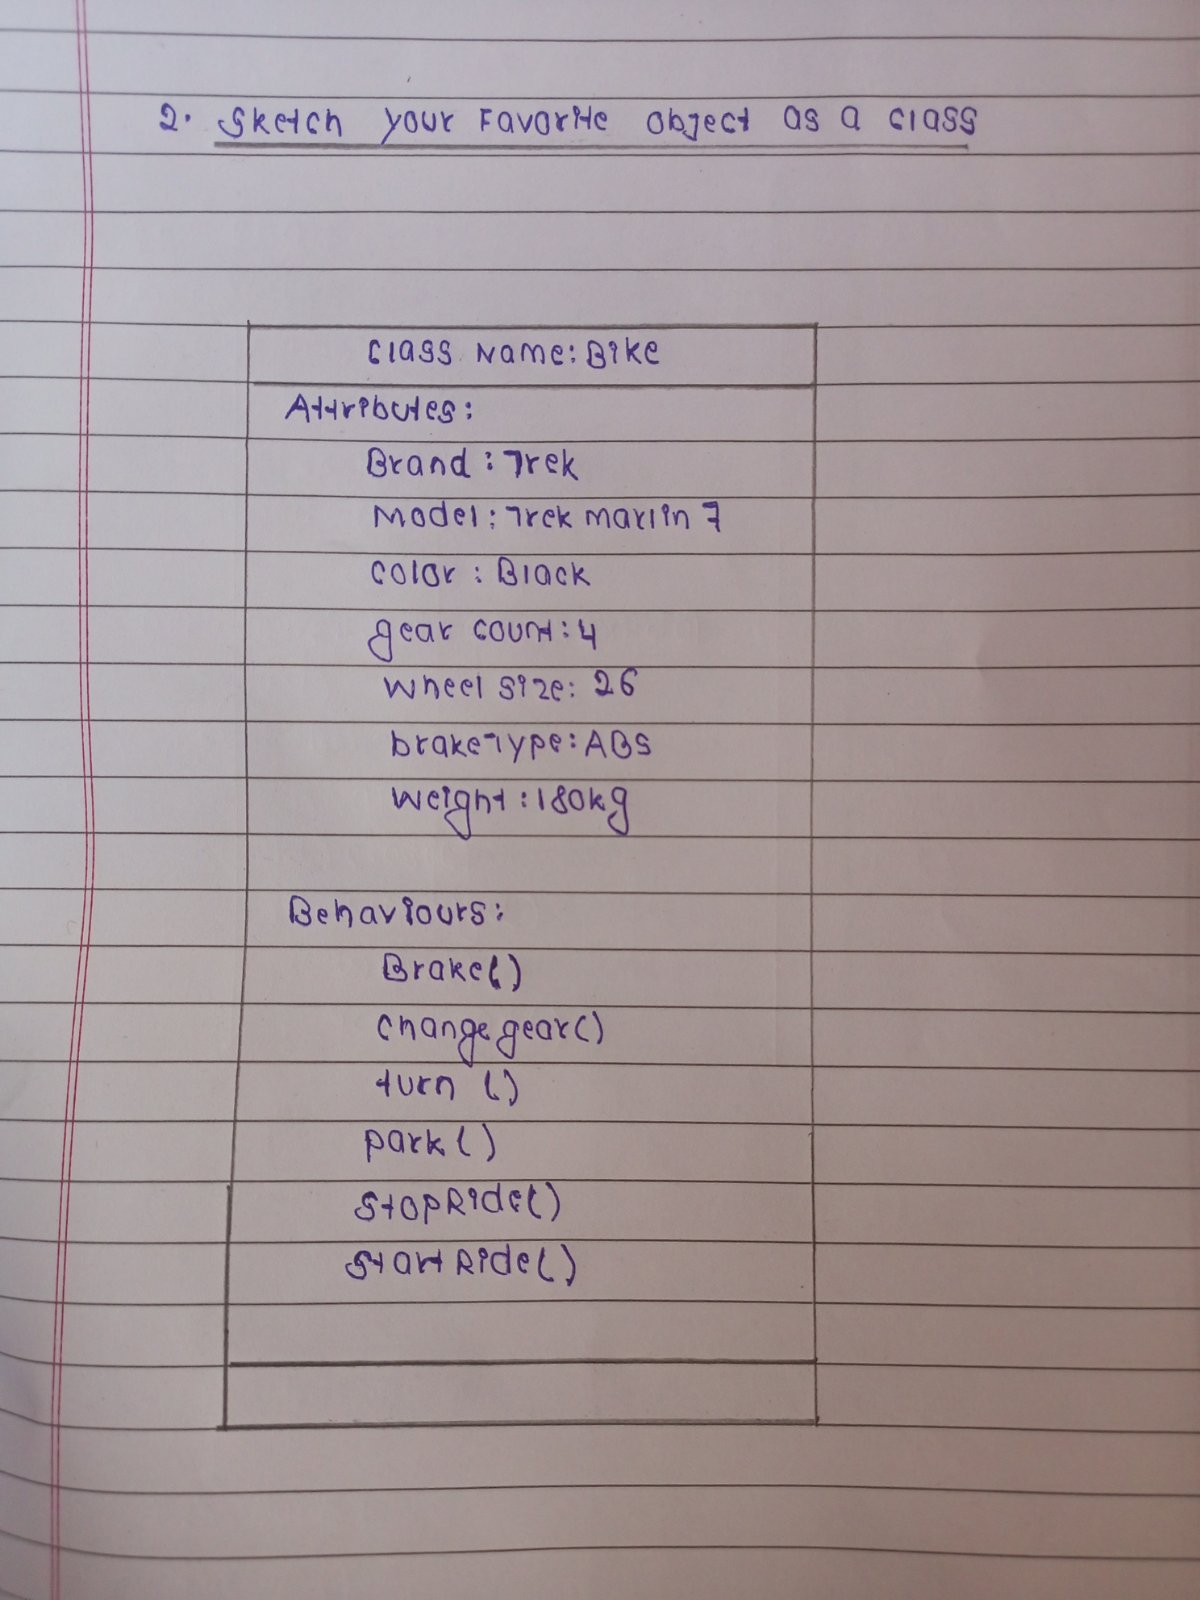 2. Sketch your Favorite object as a class
Class Name: Bike
Attributes:
Brand: Trek
Model: Trek marlin 7
Color: Black
gear count: 4
Wheel size: 26
brake Type: ABS
Weight: 180kg
Behaviours:
Brake()
change gear()
turn ()
park()
StopRide()
Start Ride()